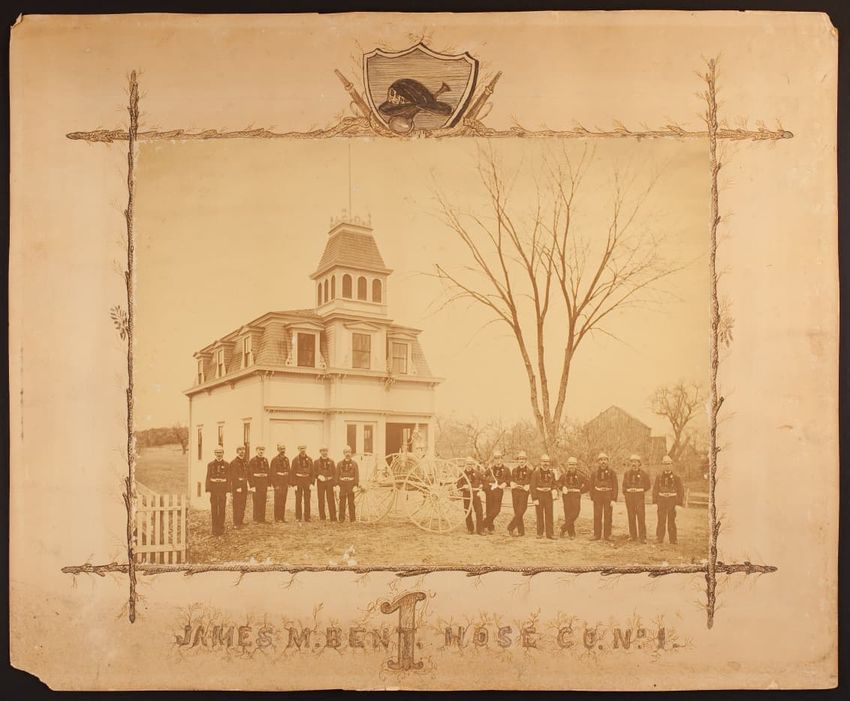 1
JAMES M. BENT. HOSE CO. No. 1.